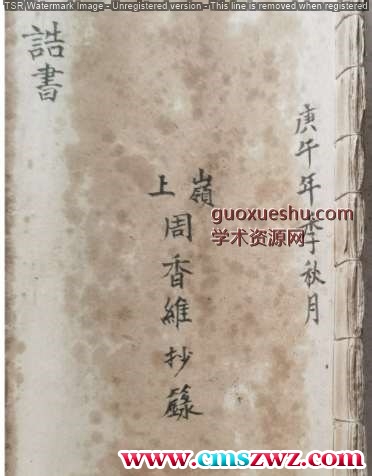 TSR Watermark Image - Unregistered version - This line is removed when registered
庚午年季秋月
嶺上
周香維抄籙
誥書
guoxueshu.com
学术资源网
www.cmszwz.com